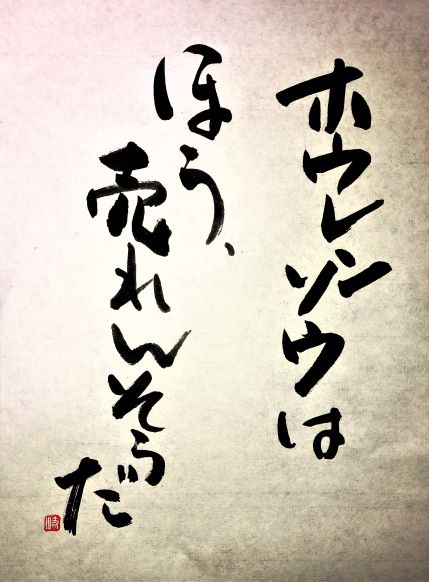 ホウレンソウは
ほう、
売れんそうだ